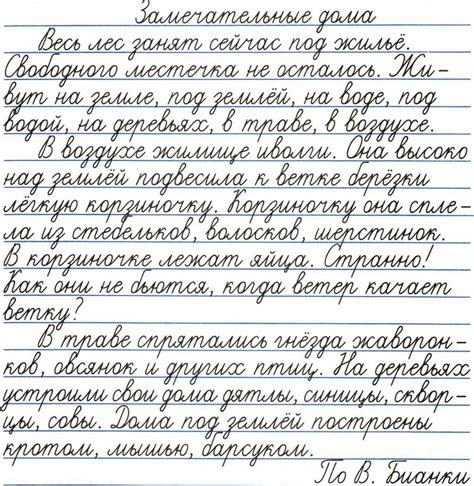 Замечательные дома
Весь лес занят сейчас под жильё.
Свободного местечка не осталось. Жи-
вут на земле, под землёй, на воде, под
водой, на деревьях, в траве, в воздухе.
В воздухе жилище иволги. Она высоко
над землёй подвесила к ветке берёзки
лёгкую корзиночку. Корзиночку она спле-
ла из стебельков, волосков, шерстинок.
В корзиночке лежат яйца. Странно!
Как они не бьются, когда ветер качает
ветку?
В траве спрятались гнёзда жаворон-
ков, овсянок и других птиц. На деревьях
устроили свои дома дятлы, синицы, сквор-
цы, совы. Дома под землёй построены
кротом, мышью, барсуком.
По В. Бианки